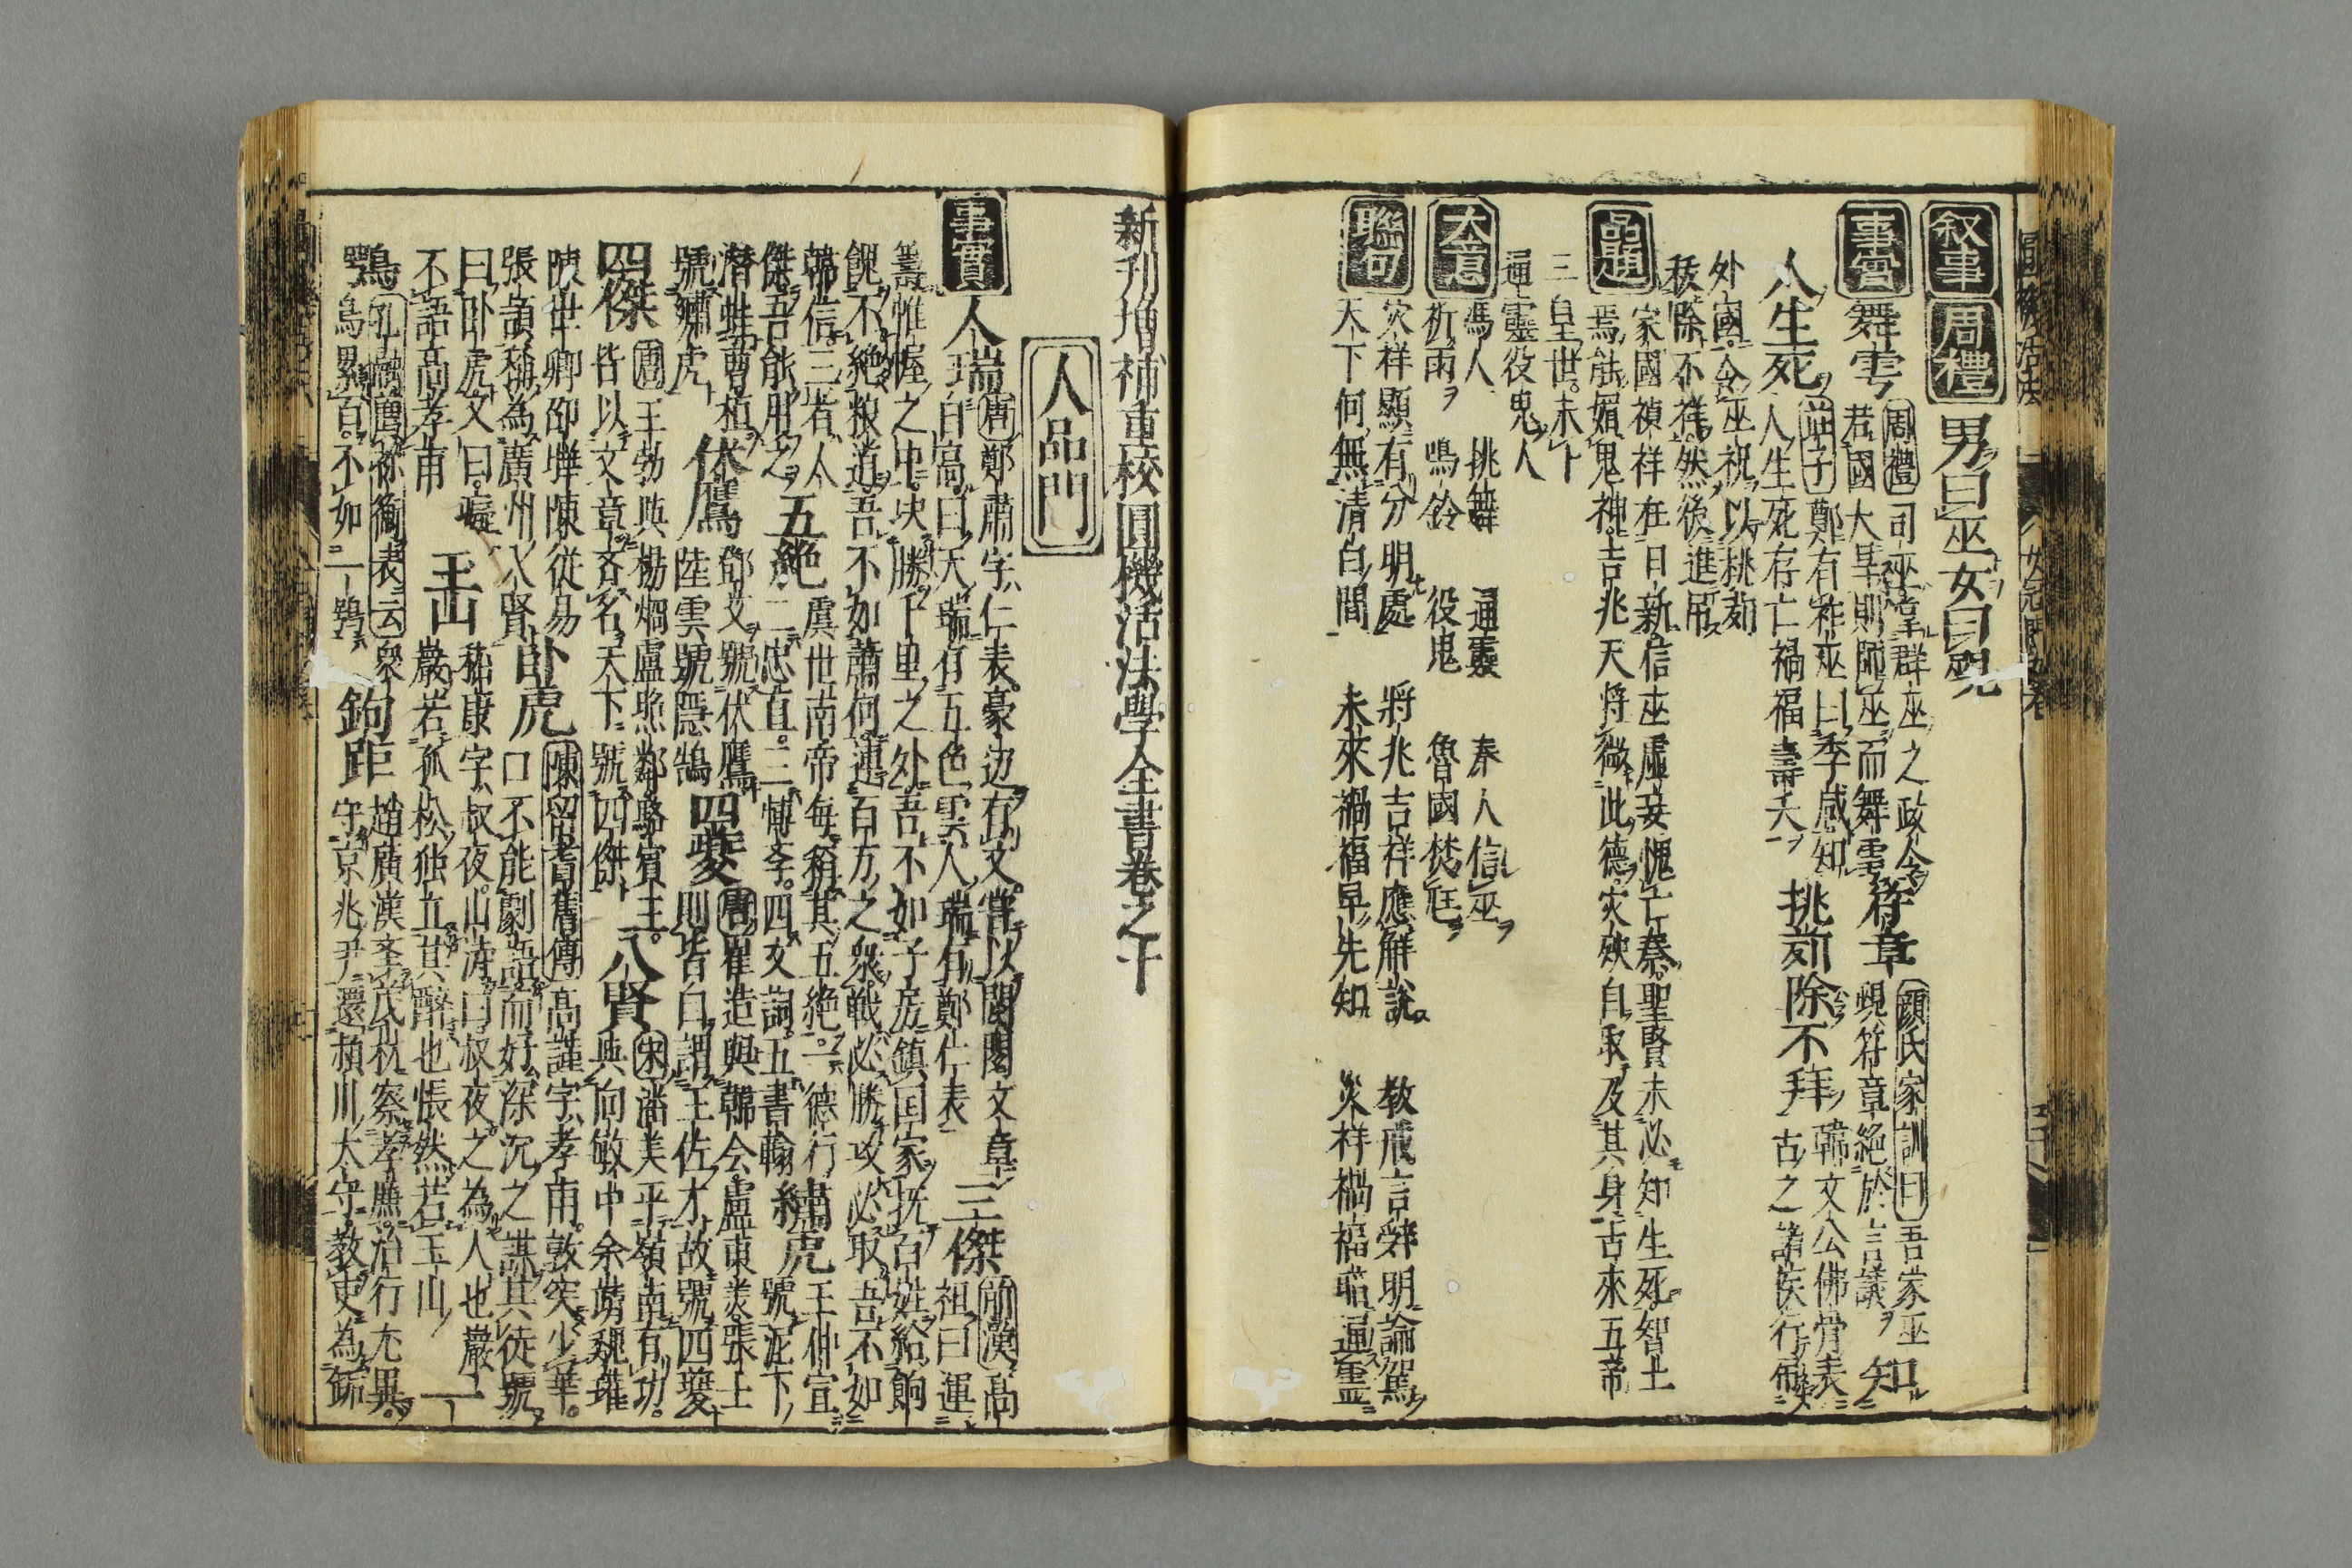 叙事 周禮 男曰巫女曰覡
事實 舞雩 周禮 司巫掌群巫之政令 符章 顔氏家訓曰 吾家巫
若國大旱則師巫而舞雩 覡符章絶於言議 知
人生死 莊子 鄭有神巫曰季咸知 桃茢除不祥 韓文公佛骨表
人生死存亡禍福壽夭 古之諸侯行弔
外國令巫祝以桃茢
祓除不祥然後進弔
品題 家國禎祥在日新信巫虚妄愧亡秦聖賢未必知生死智士
焉能媚鬼神吉兆天将微此德灾殃自取及其身古來五帝
三皇世未卜
通靈役鬼人
大意 馮人 挑舞 通靈 秦人信巫
祈雨 鳴鈴 役鬼 魯國焚尫
聯句 灾祥顯有分明處 將兆吉祥應解説 教戒言辭明論駕
天下何無清白間 未來禍福早先知 災祥禍福茹通靈
新刊增補重校圓機活法學全書卷之十
人品門
事實 人瑞 唐 鄭肅字仁表豪边有文嘗以閥閲文章 三傑 前漢 高
自高曰天瑞有五色雲人瑞有鄭仁表 祖曰運
籌帷幄之中決勝千里之外吾不如子房鎮囯家抚百姓給餉
餽不絶粮道吾不如蕭何連百万之衆戰必勝攻必取吾不如
韓信三者人 五絶 虞世南帝每稱其五絶一德行 繡虎 王仲宣
傑吾能用之 二忠直三博李四文詞五書翰 號泥下
潜蛙曹植 伏鷹 郤艾號伏鷹 四夔 唐 崔造與韓会盧東羙張士
號繍虎 陸雲號隠鵠 則皆自謂王佐才故號四夔
四傑 唐 王勃與楊烱盧照鄰駱賓王 八賢 宋 潘美平嶺南有功
皆以文章斉名天下號四傑 與向敏中余靖魏瓘
陂世卿邵曄陳從易 卧虎 陳留耆舊傳 高謹字孝甫敦突少華
張頡稱為廣州八賢 口不能劇語而好深沉之謀其徒號
曰卧虎文曰嶷 玉山 嵇康字叔夜山涛曰叔夜之為人也巖一
不語高孝甫 巖若孤松独立其醉也悵然若玉山
鶚 孔融薦祢衡表云 衆 鉤距 趙廣漢李氏杭察孝廉治行尤異
鳥累百不如一鶚 守京兆尹還頴川太守教吏為缿